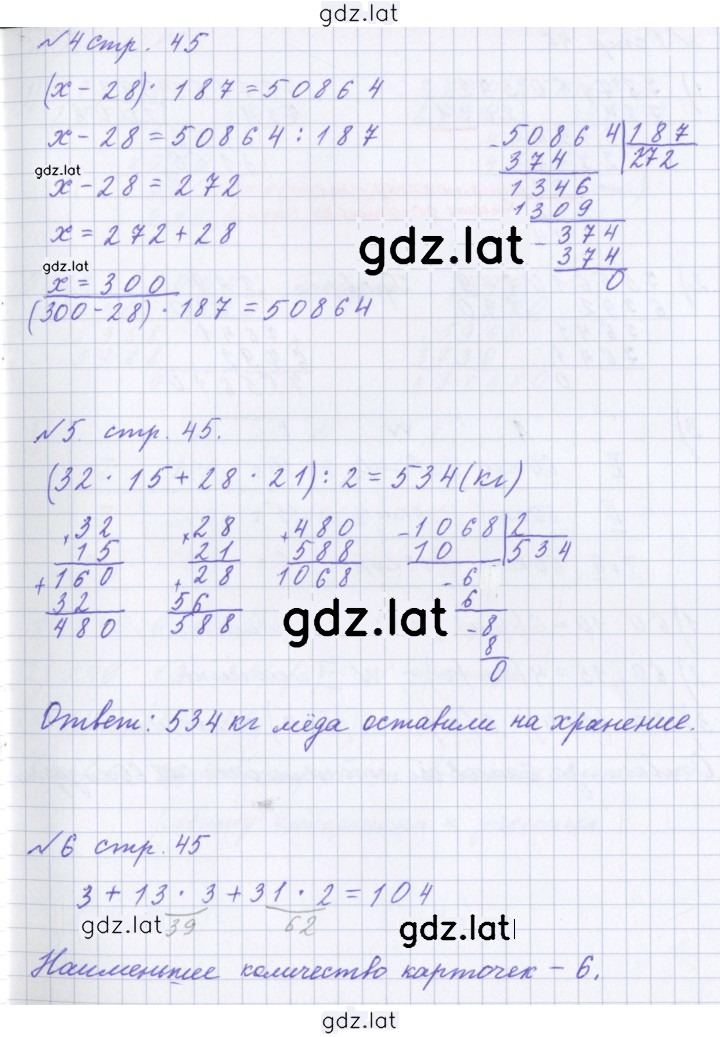 gdz.lat
№4 стр. 45
(x - 28) · 187 = 50864
x - 28 = 50864 : 187
gdz.lat
x - 28 = 272
x = 272 + 28
gdz.lat
x = 300
(300 - 28) · 187 = 50864
- 50864 | 187
374 | 272
1346
1309
- 374
374
0
gdz.lat
№5 стр. 45.
(32 · 15 + 28 · 21) : 2 = 534 (кг)
× 32
15
+ 160
32
480
× 28
21
+ 28
56
588
+ 480
588
1068
- 1068 | 2
10 | 534
- 6
6
- 8
8
0
gdz.lat
Ответ: 534 кг мёда оставили на хранение.
№6 стр. 45
3 + 13 · 3 + 31 · 2 = 104
39 62
gdz.lat
gdz.lat
Наименьшее количество карточек - 6.
gdz.lat